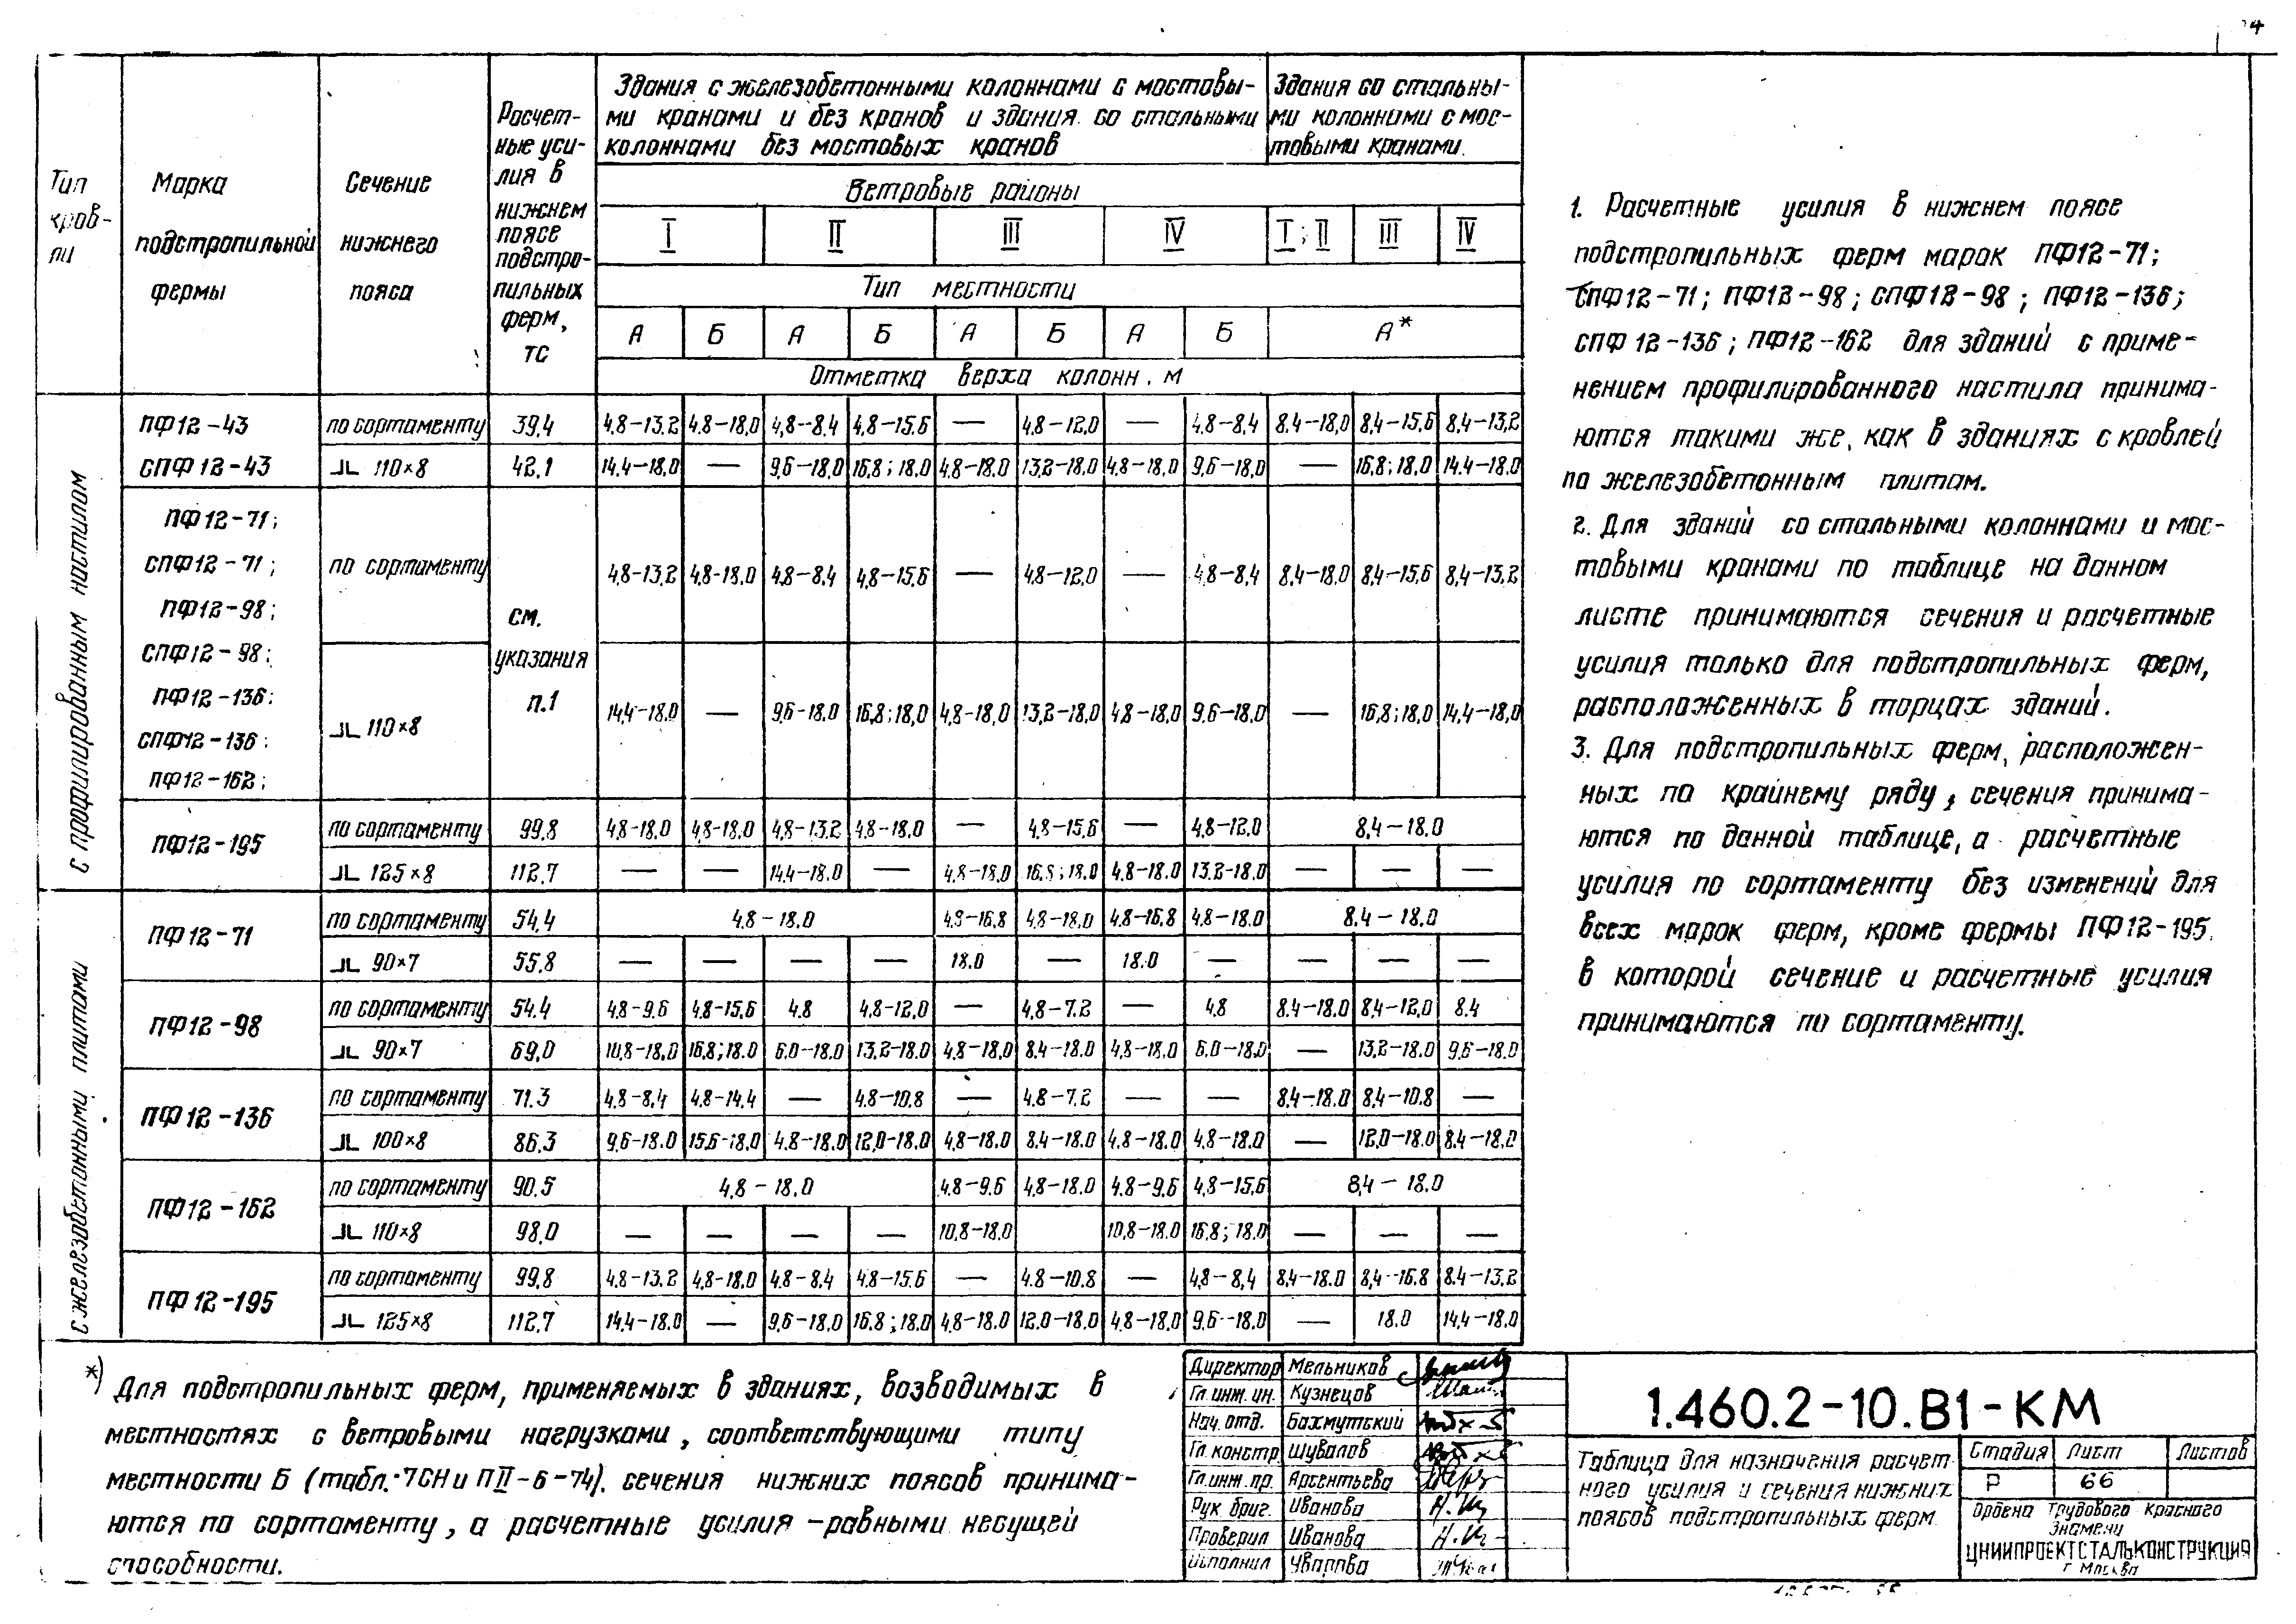 Тип кров-ли
Марка подстропильной фермы
Сечение нижнего пояса
Расчет-ные уси-лия в нижнем поясе подстро-пильных ферм, тс
Здания с железобетонными колоннами с мостовы-
ми кранами и без кранов и здания со стальными
колоннами без мостовых кранов
Здания со стальны-
ми колоннами с мос-
товыми кранами.
Ветровые районы
I II III IV I; II III IV
Тип местности
А Б А Б А Б А Б А*
Отметка верха колонн, м
с профилированным настилом
ПФ12-43 по сортаменту 39,4 4,8-13,2 4,8-18,0 4,8-8,4 4,8-15,6 — 4,8-12,0 — 4,8-8,4 8,4-18,0 8,4-15,6 8,4-13,2
СПФ12-43 ⅃L 110×8 42,1 14,4-18,0 — 9,6-18,0 16,8; 18,0 4,8-18,0 13,2-18,0 4,8-18,0 9,6-18,0 — 16,8; 18,0 14,4-18,0
ПФ12-71;
СПФ12-71;
ПФ12-98;
СПФ12-98;
ПФ12-136;
СПФ12-136;
ПФ12-162;
см. указания п.1
по сортаменту 4,8-13,2 4,8-18,0 4,8-8,4 4,8-15,6 — 4,8-12,0 — 4,8-8,4 8,4-18,0 8,4-15,6 8,4-13,2
⅃L 110×8 14,4-18,0 — 9,6-18,0 16,8; 18,0 4,8-18,0 13,2-18,0 4,8-18,0 9,6-18,0 — 16,8; 18,0 14,4-18,0
ПФ12-195
по сортаменту 99,8 4,8-18,0 4,8-18,0 4,8-13,2 4,8-18,0 — 4,8-15,6 — 4,8-12,0 8,4-18,0
⅃L 125×8 112,7 — — 14,4-18,0 — 4,8-18,0 16,8; 18,0 4,8-18,0 13,2-18,0 — — —
с железобетонными плитами
ПФ12-71
по сортаменту 54,4 4,8-18,0 4,8-16,8 4,8-18,0 4,8-16,8 4,8-18,0 8,4-18,0
⅃L 90×7 55,8 — — — — 18,0 — 18,0 — — — —
ПФ12-98
по сортаменту 54,4 4,8-9,6 4,8-15,6 4,8 4,8-12,0 — 4,8-7,2 — 4,8 8,4-18,0 8,4-12,0 8,4
⅃L 90×7 69,0 10,8-18,0 16,8; 18,0 6,0-18,0 13,2-18,0 4,8-18,0 8,4-18,0 4,8-18,0 6,0-18,0 — 13,2-18,0 9,6-18,0
ПФ12-136
по сортаменту 71,3 4,8-8,4 4,8-14,4 — 4,8-10,8 — 4,8-7,2 — — 8,4-18,0 8,4-10,8 —
⅃L 100×8 86,3 9,6-18,0 15,6-18,0 4,8-18,0 12,0-18,0 4,8-18,0 8,4-18,0 4,8-18,0 4,8-18,0 — 12,0-18,0 8,4-18,0
ПФ12-162
по сортаменту 90,5 4,8-18,0 4,8-9,6 4,8-18,0 4,8-9,6 4,8-15,6 8,4-18,0
⅃L 110×8 98,0 — — — — 10,8-18,0 10,8-18,0 16,8; 18,0 — — —
ПФ12-195
по сортаменту 99,8 4,8-13,2 4,8-18,0 4,8-8,4 4,8-15,6 — 4,8-10,8 — 4,8-8,4 8,4-18,0 8,4-16,8 8,4-13,2
⅃L 125×8 112,7 14,4-18,0 — 9,6-18,0 16,8; 18,0 4,8-18,0 12,0-18,0 4,8-18,0 9,6-18,0 — 18,0 14,4-18,0
1. Расчетные усилия в нижнем поясе
подстропильных ферм марок ПФ12-71;
СПФ12-71; ПФ12-98; СПФ12-98; ПФ12-136;
СПФ12-136; ПФ12-162 для зданий с приме-
нением профилированного настила принима-
ются такими же, как в зданиях с кровлей
по железобетонным плитам.
2. Для зданий со стальными колоннами и мос-
товыми кранами по таблице на данном
листе принимаются сечения и расчетные
усилия только для подстропильных ферм,
расположенных в торцах зданий.
3. Для подстропильных ферм, расположен-
ных по крайнему ряду, сечения принима-
ются по данной таблице, а расчетные
усилия по сортаменту без изменений для
всех марок ферм, кроме фермы ПФ12-195,
в которой сечение и расчетные усилия
принимаются по сортаменту.
*) Для подстропильных ферм, применяемых в зданиях, возводимых в
местностях с ветровыми нагрузками, соответствующими типу
местности Б (табл. 7 СНиПII-6-74), сечения нижних поясов принима-
ются по сортаменту, а расчетные усилия -равными несущей
способности.
Директор Мельников
Гл. инж. ин. Кузнецов
Нач. отд. Бахмутский
Гл. констр. Шувалов
Гл. инж. пр. Арсентьева
Рук. бриг. Иванова
Проверил Иванова
Исполнил Уварова
1.460.2-10.В1-КМ
Таблица для назначения расчет-
ного усилия и сечения нижних
поясов подстропильных ферм
Стадия Лист Листов
Р 66
Ордена Трудового Красного
Знамени
ЦНИИПРОЕКТСТАЛЬКОНСТРУКЦИЯ
г. Москва